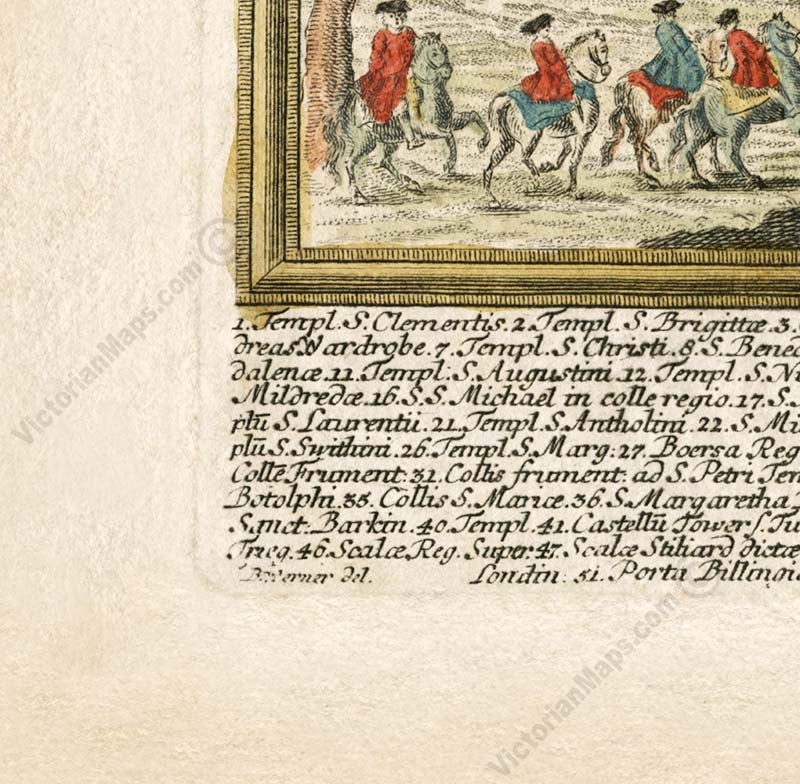 1. Templ. S. Clementis. 2. Templ. S. Brigittæ. 3.
dreas Wardrobe. 7. Templ. S. Christi. 8. S. Bened
dalenæ. 11. Templ: S. Augustini. 12. Templ. S. Ni
Mildredæ. 16. S. S. Michael in colle regio. 17. S.
plũ S. Laurentii. 21. Templ. S. Antholini. 22. S. Mi
plũ S. Swithini. 26. Templ. S. Marg: 27. Boersa Reg
Colle Frument: 31. Collis frument: ad S. Petri Tem
Botolphi. 35. Collis S. Mariæ. 36. S. Margaretha
Sanct: Barkin. 40. Templ. 41. Castellũ Tower s. Tu
Trieg. 46. Scalæ Reg. Super: 47. Scalæ Stiliard dictæ
del. Londin: 51. Porta Billingi
VictorianMaps.com ©
VictorianMaps.com ©
VictorianMaps.com